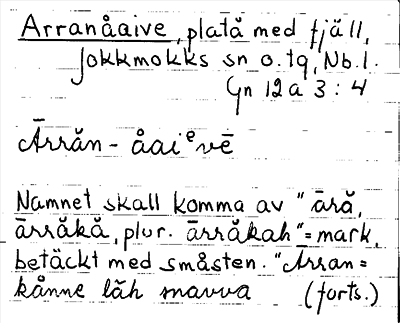 Arranåaive, platå med fjäll,
Jokkmokks sn o. tg, Nb. l.
Gn 12 a 3 : 4
Ārrăn - åaiᵉvē
Namnet skall komma av "āră,
ārråkă, plur. ārråkah" = mark,
betäckt med småsten. "Ārran =
kånne läh mavva (forts.)